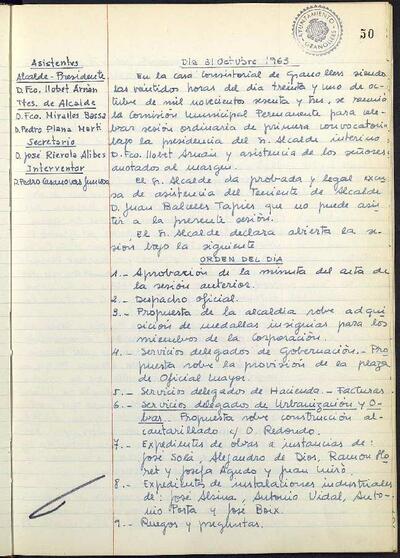 AYUNTAMIENTO
GRANOLLERS
50
Asistentes
Alcalde-Presidente
D. Fco. Llobet Arnán
Ttes. de Alcalde
D. Fco. Miralles Bassa
D. Pedro Plana Martí
Secretario
D. José Rierola Alibés
Interventor
D. Pedro Casanovas
Día 31 Octubre 1963
En la casa Consistorial de Granollers siendo
las veintidós horas del día treinta y uno de oc-
tubre de mil novecientos sesenta y tres, se reunió
la Comisión Municipal Permanente para cele-
brar sesión ordinaria de primera convocatoria
bajo la presidencia del Sr. Alcalde interino,
D. Fco. Llobet Arnán y asistencia de los señores
anotados al margen.
El Sr. Alcalde da probada y legal excu-
sa de asistencia del Teniente de Alcalde
D. Juan Balcells Tapies que no puede asis-
tir a la presente sesión.
El Sr. Alcalde declara abierta la se-
sión bajo la siguiente
ORDEN DEL DÍA
1.- Aprobación de la minuta del acta de
la sesión anterior.
2.- Despacho oficial.
3.- Propuesta de la alcaldía sobre ad-
quisición de medallas insignias para los
miembros de la Corporación.
4.- Servicios delegados de Gobernación.- Pro
puesta sobre la provisión de la plaza
de Oficial Mayor.
5.- Servicios delegados de Hacienda.- Facturas
6.- Servicios delegados de Urbanización y O-
bras. Propuesta sobre construcción al-
cantarillado c/ O. Redondo.
7.- Expedientes de obras a instancias de:
José Solá, Alejandro de Dios, Ramón Llo
ret y Josefa Agudo y Juan Miró.
8.- Expedientes de instalaciones industriales
de: José Alsina, Antonio Vidal, Anto-
nio Porta y José Boix.
9.- Ruegos y preguntas.